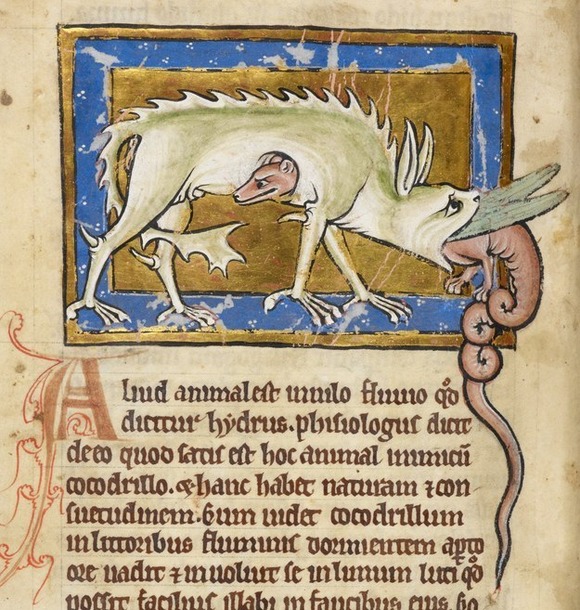 Aliud animal est in nilo fluuio qđ
dicitur hydrus. phisiologus dicit
de eo quod satis est hoc animal inimicū
cocodrillo. ⁊ hanc habet naturam ⁊ con
suetudinem. Cum uidet cocodrillum
in littoribus fluminis dormientem apto
ore uadit ⁊ inuoluit se in limum luti qđ
possit facilius illabi in faucibus eius